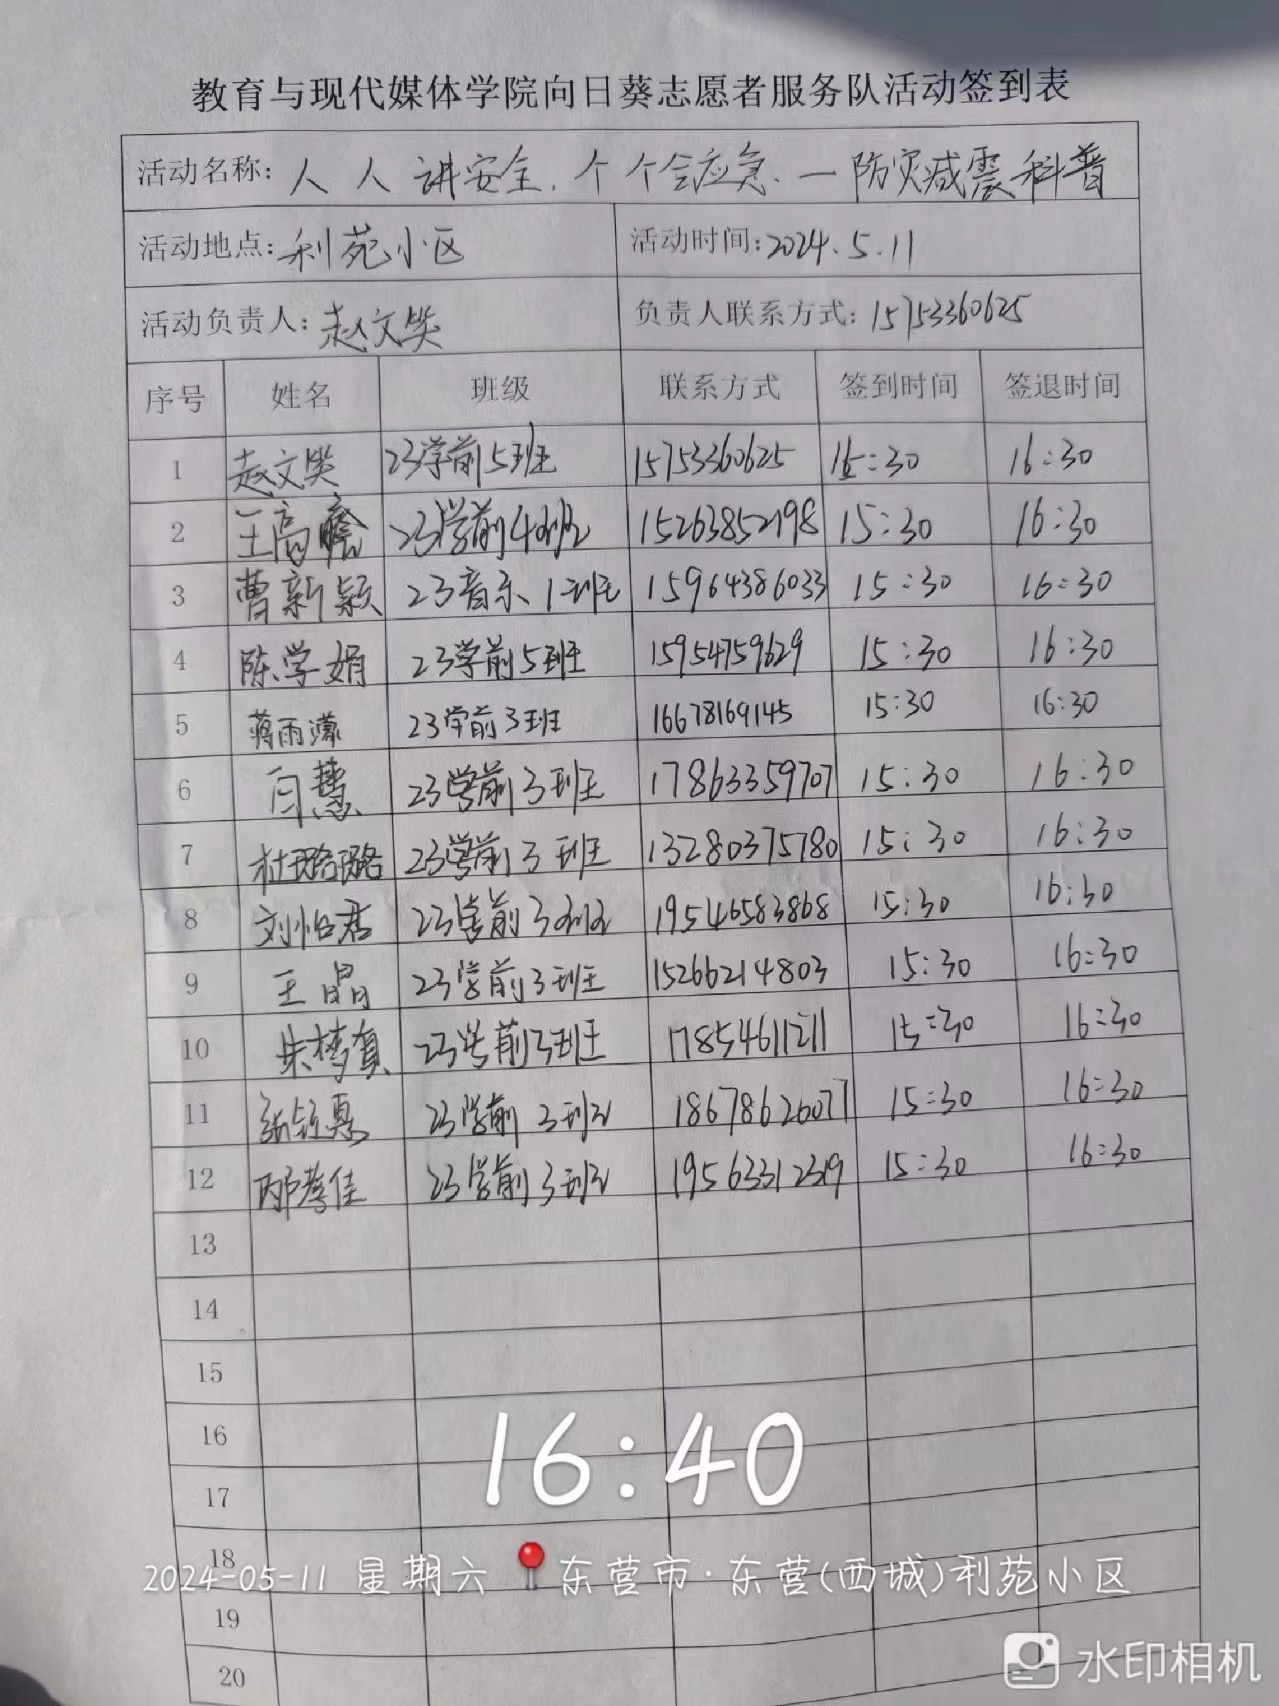 教育与现代媒体学院向日葵志愿者服务队活动签到表
活动名称: 人人讲安全、个个会应急、一防灾减震科普
活动地点: 利苑小区 活动时间: 2024.5.11
活动负责人: 赵文笑 负责人联系方式: 15753360625
序号 姓名 班级 联系方式 签到时间 签退时间
1 赵文笑 23学前5班 15753360625 15:30 16:30
2 王高瞻 23学前4班 15263852198 15:30 16:30
3 曹新颖 23音乐1班 15964386033 15:30 16:30
4 陈学娟 23学前5班 15954759629 15:30 16:30
5 蒋雨濛 23学前3班 16678169145 15:30 16:30
6 闫慧 23学前3班 17863359707 15:30 16:30
7 杜璐璐 23学前3班 13280375780 15:30 16:30
8 刘怡君 23学前3班 19546583868 15:30 16:30
9 王晶 23学前3班 15266214803 15:30 16:30
10 朱梦真 23学前3班 17854611211 15:30 16:30
11 张钰惠 23学前3班 18678626071 15:30 16:30
12 邴孝佳 23学前3班 19563312319 15:30 16:30
13
14
15
16
16:40
17
18
2024-05-11 星期六 东营市·东营(西城)利苑小区
19
20
水印相机